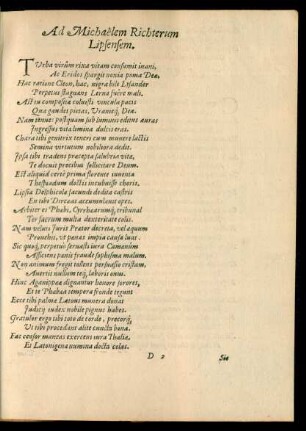 Ad Michaëlem Richterum
Lipsensem.
TVrba virûm rixa vitam consumit inani,
At Eridos spargit noxia poma Dea.
Hac ratione Cleon, hac, nigra bile Lisander
Perpetuo stagnans Lerna fuere mali.
Ast tu compositos coluisti vincula pacis
Qua gaudes pietas, Vranieq́; Dea.
Nam tenue postquam sub lumine cælens auras
Ingressus vita lumina dulcis eras.
Chara tibi genitrix teneri cum munere lactis
Semina virtutum nobiliora dedit.
Ipsa tibi tradens præcepta salubria vitæ,
Te docuit precibus sollicitare Deum.
Est aliquid certè prima florente iuuenta
Thespiadum doctis incubuisse choris.
Lipsia Delphicola facundo dedita castris
En tibi Dircæas accumulauit opes.
Arbiter es Phœbi, Cyrrhæarumq́; tribunal
Ter sacrum multa dexteritate colis.
Nam velut Iuris Prætor decreta, vel æquum
Promthis, vt pœnas impia causa luat.
Sic quoq́; perpetuò seruasti iura Camœnum
Afficiens pœnis fraude sophisma malum.
Non animum fregit tostens persuasio tristam,
Auertit nullum teq́; laboris onus.
Hinc Aganippæa dignantur honore sorores,
Et te Phœbæa tempora fronde tegunt
Ecce tibi palma Latius munera donat
Iudicij index nobile pignus habes.
Gratulor ergo tibi toto de corde, precorq́;
Vt tibi procedant alite cuncta bona.
Fac censor maneas exercens iura Thaliæ,
Et Latonigenæ numina docta colas.
D 2
Sic